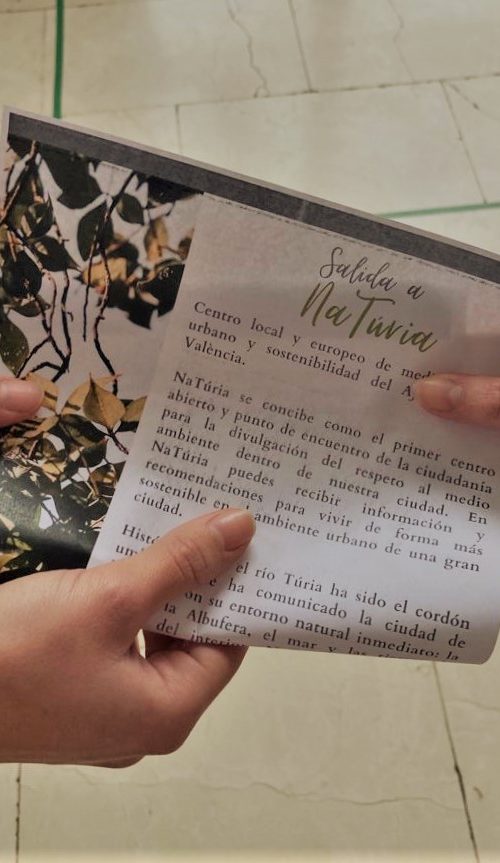 Salida a
NaTúria
Centro local y europeo de
urbano y sostenibilidad del
València.
NaTúria se concibe como el primer centro
abierto y punto de encuentro de la ciudadanía
para la divulgación del respeto al medio
ambiente dentro de nuestra ciudad. En
NaTúria puedes recibir información y
recomendaciones para vivir de forma más
sostenible en ambiente urbano de una gran
ciudad.
el río Túria ha sido el cordón
ha comunicado la ciudad de
su entorno natural inmediato: la
la Albufera, el mar y las
del